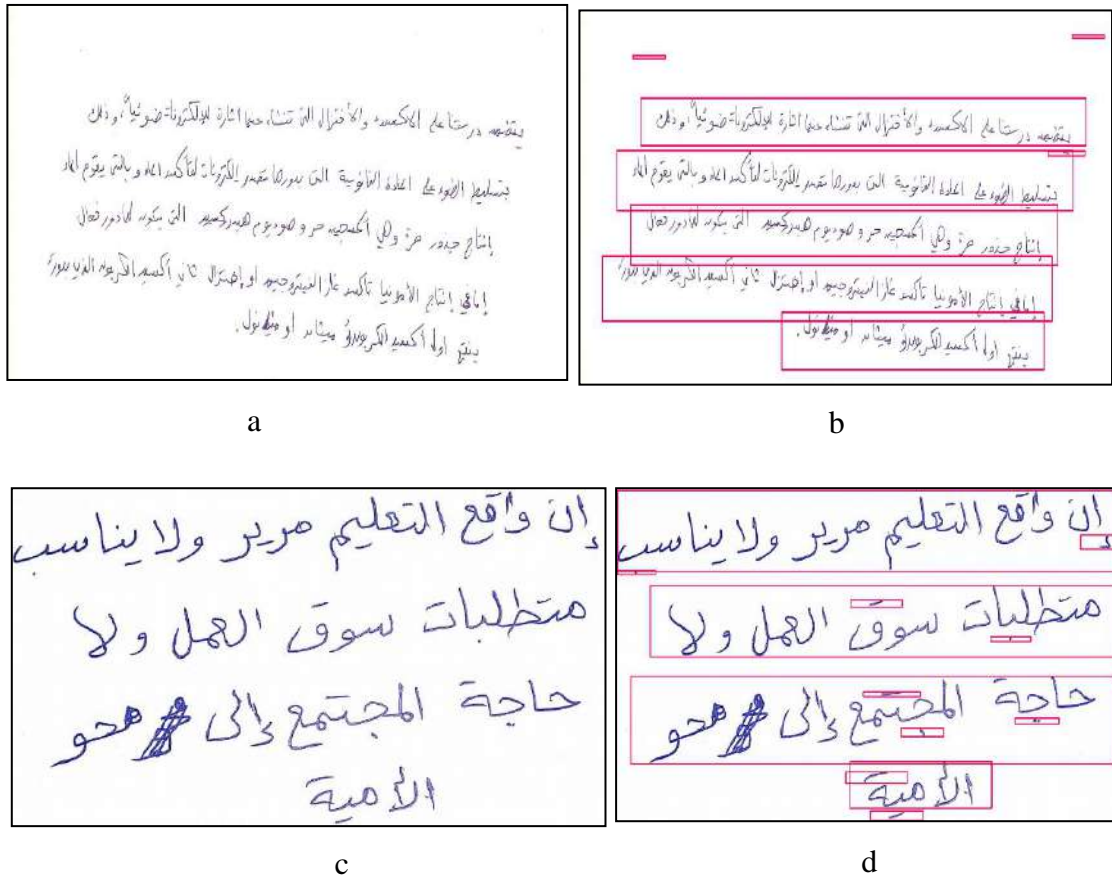 درستنا على الاكسده والأختزال التي تنشاء اثارة الإلكترونات ضوئياً، وذلك
بتسليط الضوء على المادة النانوية التي بدورها إلكترونات لتأكسد الماء وبالتي يقوم الماء
إنتاج جذور حرة وهي أكسجين حر التي يكون لها دور فعال
إما في إنتاج الأمونيا تأكسد غاز النيتروجين او إختزال ثاني أكسيد الكربون الذي بدوره
ينتج اول أكسيد ميثان او
a
درستنا على الاكسده والأختزال التي تنشاء اثارة الإلكترونات ضوئياً، وذلك
بتسليط الضوء على المادة النانوية التي بدورها إلكترونات لتأكسد الماء وبالتي يقوم الماء
إنتاج جذور حرة وهي أكسجين حر التي يكون لها دور فعال
إما في إنتاج الأمونيا تأكسد غاز النيتروجين او إختزال ثاني أكسيد الكربون الذي بدوره
ينتج اول أكسيد ميثان او
b
إن واقع التعليم مرير ولا يناسب
متطلبات سوق العمل ولا
حاجة المجتمع إلى محو
الأمية
c
إن واقع التعليم مرير ولا يناسب
متطلبات سوق العمل ولا
حاجة المجتمع إلى محو
الأمية
d